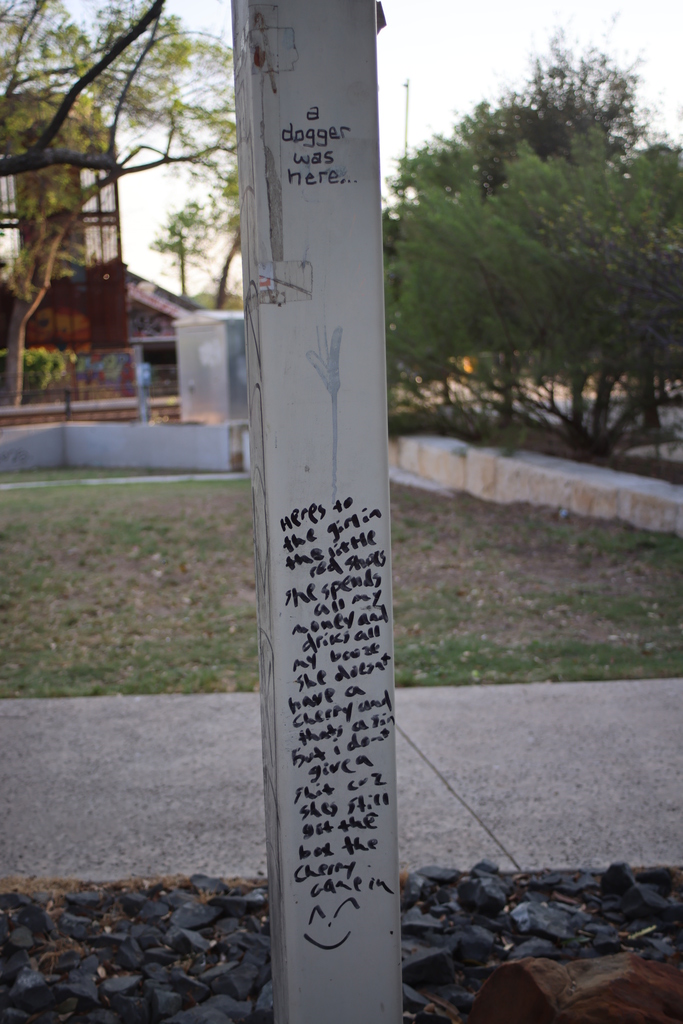 a
dogger
was
here...
Heres to
the girl in
the little
red shoes
she spends
all my
money and
drinks all
my booze
she doesnt
have a
cherry and
thats a sin
but i dont
give a
shit cuz
shes still
got the
box the
cherry
came in